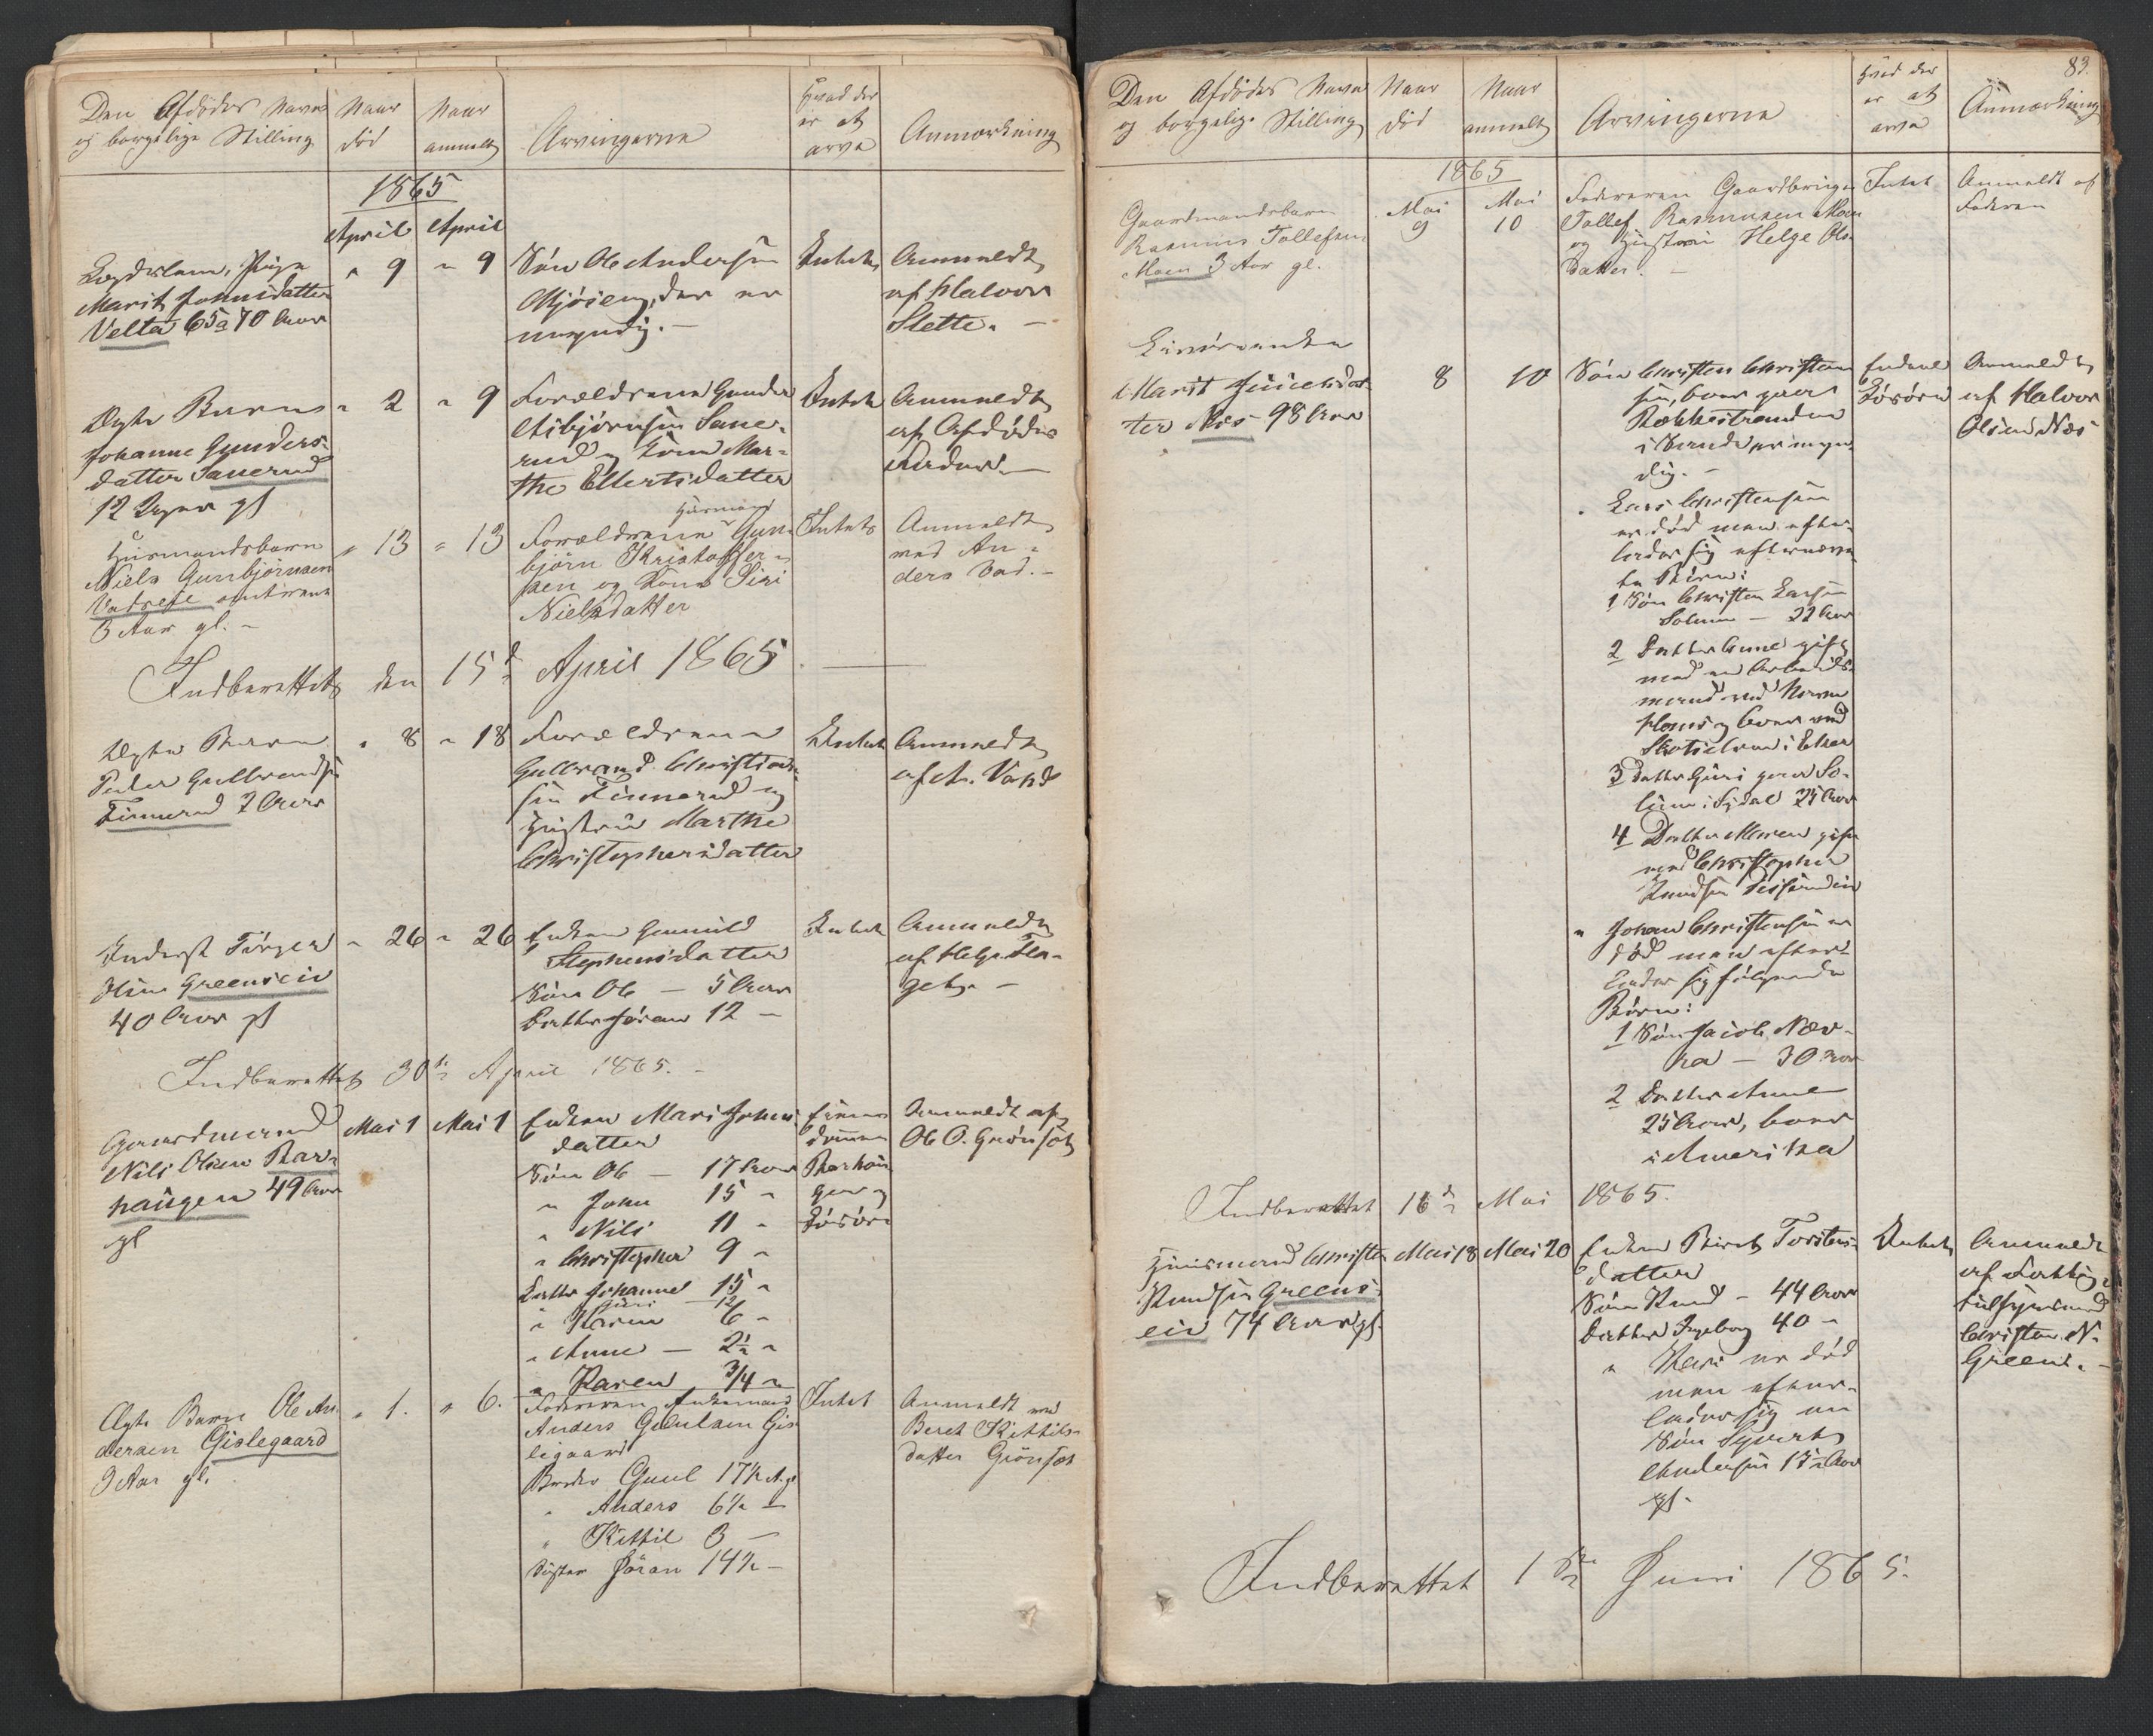 Den Afdødes Navn
og borgelige Stilling
Naar
død
Naar
anmeldt
Arvingerne
Hvad der
er at
arve
Anmærkning
1865
April April
Lægdslem, Pige
Marit Johnsdatter
Velta 65 a 70 Aar
" 9 " 9
Søn Ole Andersen
Mjøien, der er
myndig. –
Intet
Anmeldt
af Halvor
Slette. –
Ægte Barn
Johanne Gunders-
datter Sanerud
12 Uger gl
" 2 " 9
Forældrene Gunder
Asbjørnsen Sane-
rud og Kone Mar-
the Ellertsdatter
Intet
Anmeldt
af Afdødes
Fader. –
Huusmandsbarn
Niels Gunbjørnsen
3 Aar gl. –
" 13 " 13
Huusmand
Forældrene Gun-
bjørn Kristoffer-
sen og Kone Siri
Nielsdatter
Intet
Anmeldt
ved An-
ders Vad. –
Indberettet den 15d April 1865
Ægte Barn
Peder Gulbrandsen
Finnerud 2 Aar
" 8 " 18
Forældrene
Gulbrand Christian-
sen Finnerud og
Hustru Marthe
Christophersdatter
Intet
Anmeldt
af A. Vad
Inderst Jørgen
Olsen Greenseie
40 Aar gl
" 26 " 26
Enken Gunnild
Stephensdatter
Søn Ole – 5 Aar
Datter Jøran 12 –
Intet
Anmeldt
af Helge Fla-
get. –
Indberettet 30te April 1865. –
Gaardmand
Nils Olsen Bær-
haugen 49 Aar
gl
Mai 1 Mai 1
Enken Mari Johns-
datter
Søn Ole – 17 Aar
" John 15 "
" Nils 11 "
" Christopher 9 "
Datter Johanne 15 "
" Guri – 12
" Karen 6 "
" Anne – 2½ "
" Karen 3/4 "
Eien-
dommen
Bærhau-
gen og
Løsøre
Anmeldt af
Ole O. Grønset
Ægte Barn Ole An-
dersen Gislegaard
9 Aar gl.
" 1. " 6.
Faderen Enkemand
Anders Guulsen Gis-
legaard
Broder Guul 17½ A. gl
" Anders 6½ –
" Kittil 3 –
Søster Jöran 14½ –
Intet
Anmeldt ved
Beret Kittils-
datter Grönset
83.
Den Afdødes Navn
og borgelige Stilling
Naar
død
Naar
anmeldt
Arvingerne
Hvad der
er at
arve
Anmærkning
1865
Gaardmandsbarn
Rasmus Tollefsen
Moen 3 Aar gl.
Mai
9
Mai
10
Faderen Gaardbruger
Tollef Rasmusen Moen
og Hustru Helge Ols-
datter. –
Intet
Anmeldt af
Faderen
Marit Juuelsdat-
ter Næs 98 Aar
8 10
Søn Christen Christen-
sen, boer paa
i Sande er myn-
dig. –
" Lars Christensen
er død men efter-
lader sig efternævn-
te Børn:
1 Søn Christen Larsen
Solum – 22 Aar
2 Datter Anne gift
med en Arbeids-
mand ved Narve
og boer ved
i Eker
3 Datter Guri paa So-
lum i Sigdal 25 Aar
4 Datter Maren gift
med Christopher
Knudsen
" Johan Christensen er
død men efter-
lader sig følgende
Børn:
1 Søn Jacob Nær-
ka – 30 Aar
2 Datter Anne
25 Aar, boer
i Amerika
Løsøre
Anmeldt
af Halvor
Olsen Næs
Indberettet 16d Mai 1865.
Huusmand Christen
Knudsen Greens-
eie 74 Aar gl.
Mai 18 Mai 20
Enken Biret Torstens-
datter
Søn Knud – 44 Aar
Datter Ingeborg 40 "
" Kari er død
men efter-
lader sig en
Søn Syvert
Andersen 15 Aar
gl.
Intet
Anmeldt
af Fattig-
tilsynsmand
Christen N.
Green. –
Indberettet 1ste Juni 1865.